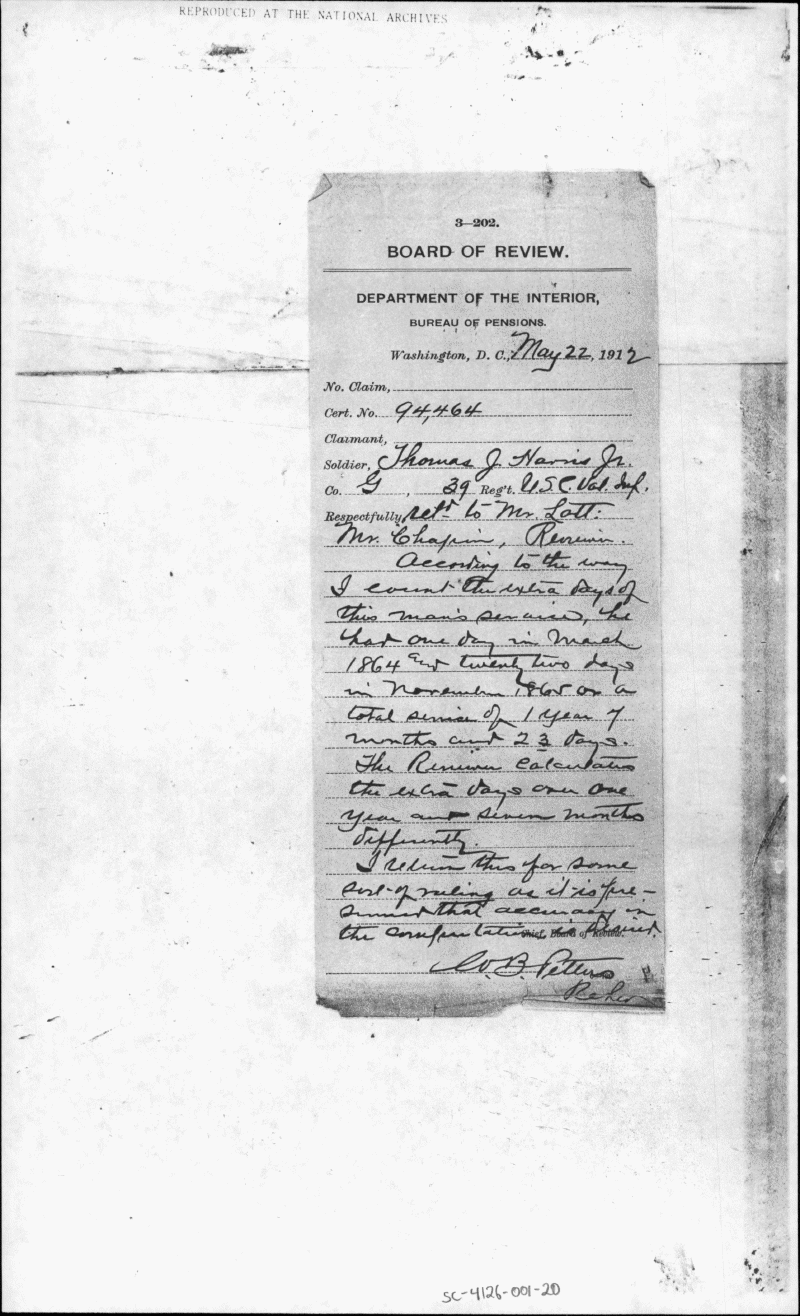 REPRODUCED AT THE NATIONAL ARCHIVES
3—202.
BOARD OF REVIEW.
DEPARTMENT OF THE INTERIOR,
BUREAU OF PENSIONS.
Washington, D. C., May 22, 1912
No. Claim,
Cert. No. 94,464
Claimant,
Soldier, Thomas J. Harris Jr.
Co. G, 39 Reg't. U.S.C. Vol. Inf.
Respectfully retd to Mr. Lott.
Mr. Chapin, Reviewer.
According to the way
I count the extra days of
this man's service, he
had one day in March
1864 and twenty two days
in November 1865 or a
total service of 1 year 7
months and 23 days.
The Reviewer calculates
the extra days over one
year and seven months
differently.
I return this for some
sort of ruling as it is pre-
sumed that accuracy in
the computation is desired.
Chief, Board of Review.
W. B. Petters
SC-4126-001-20